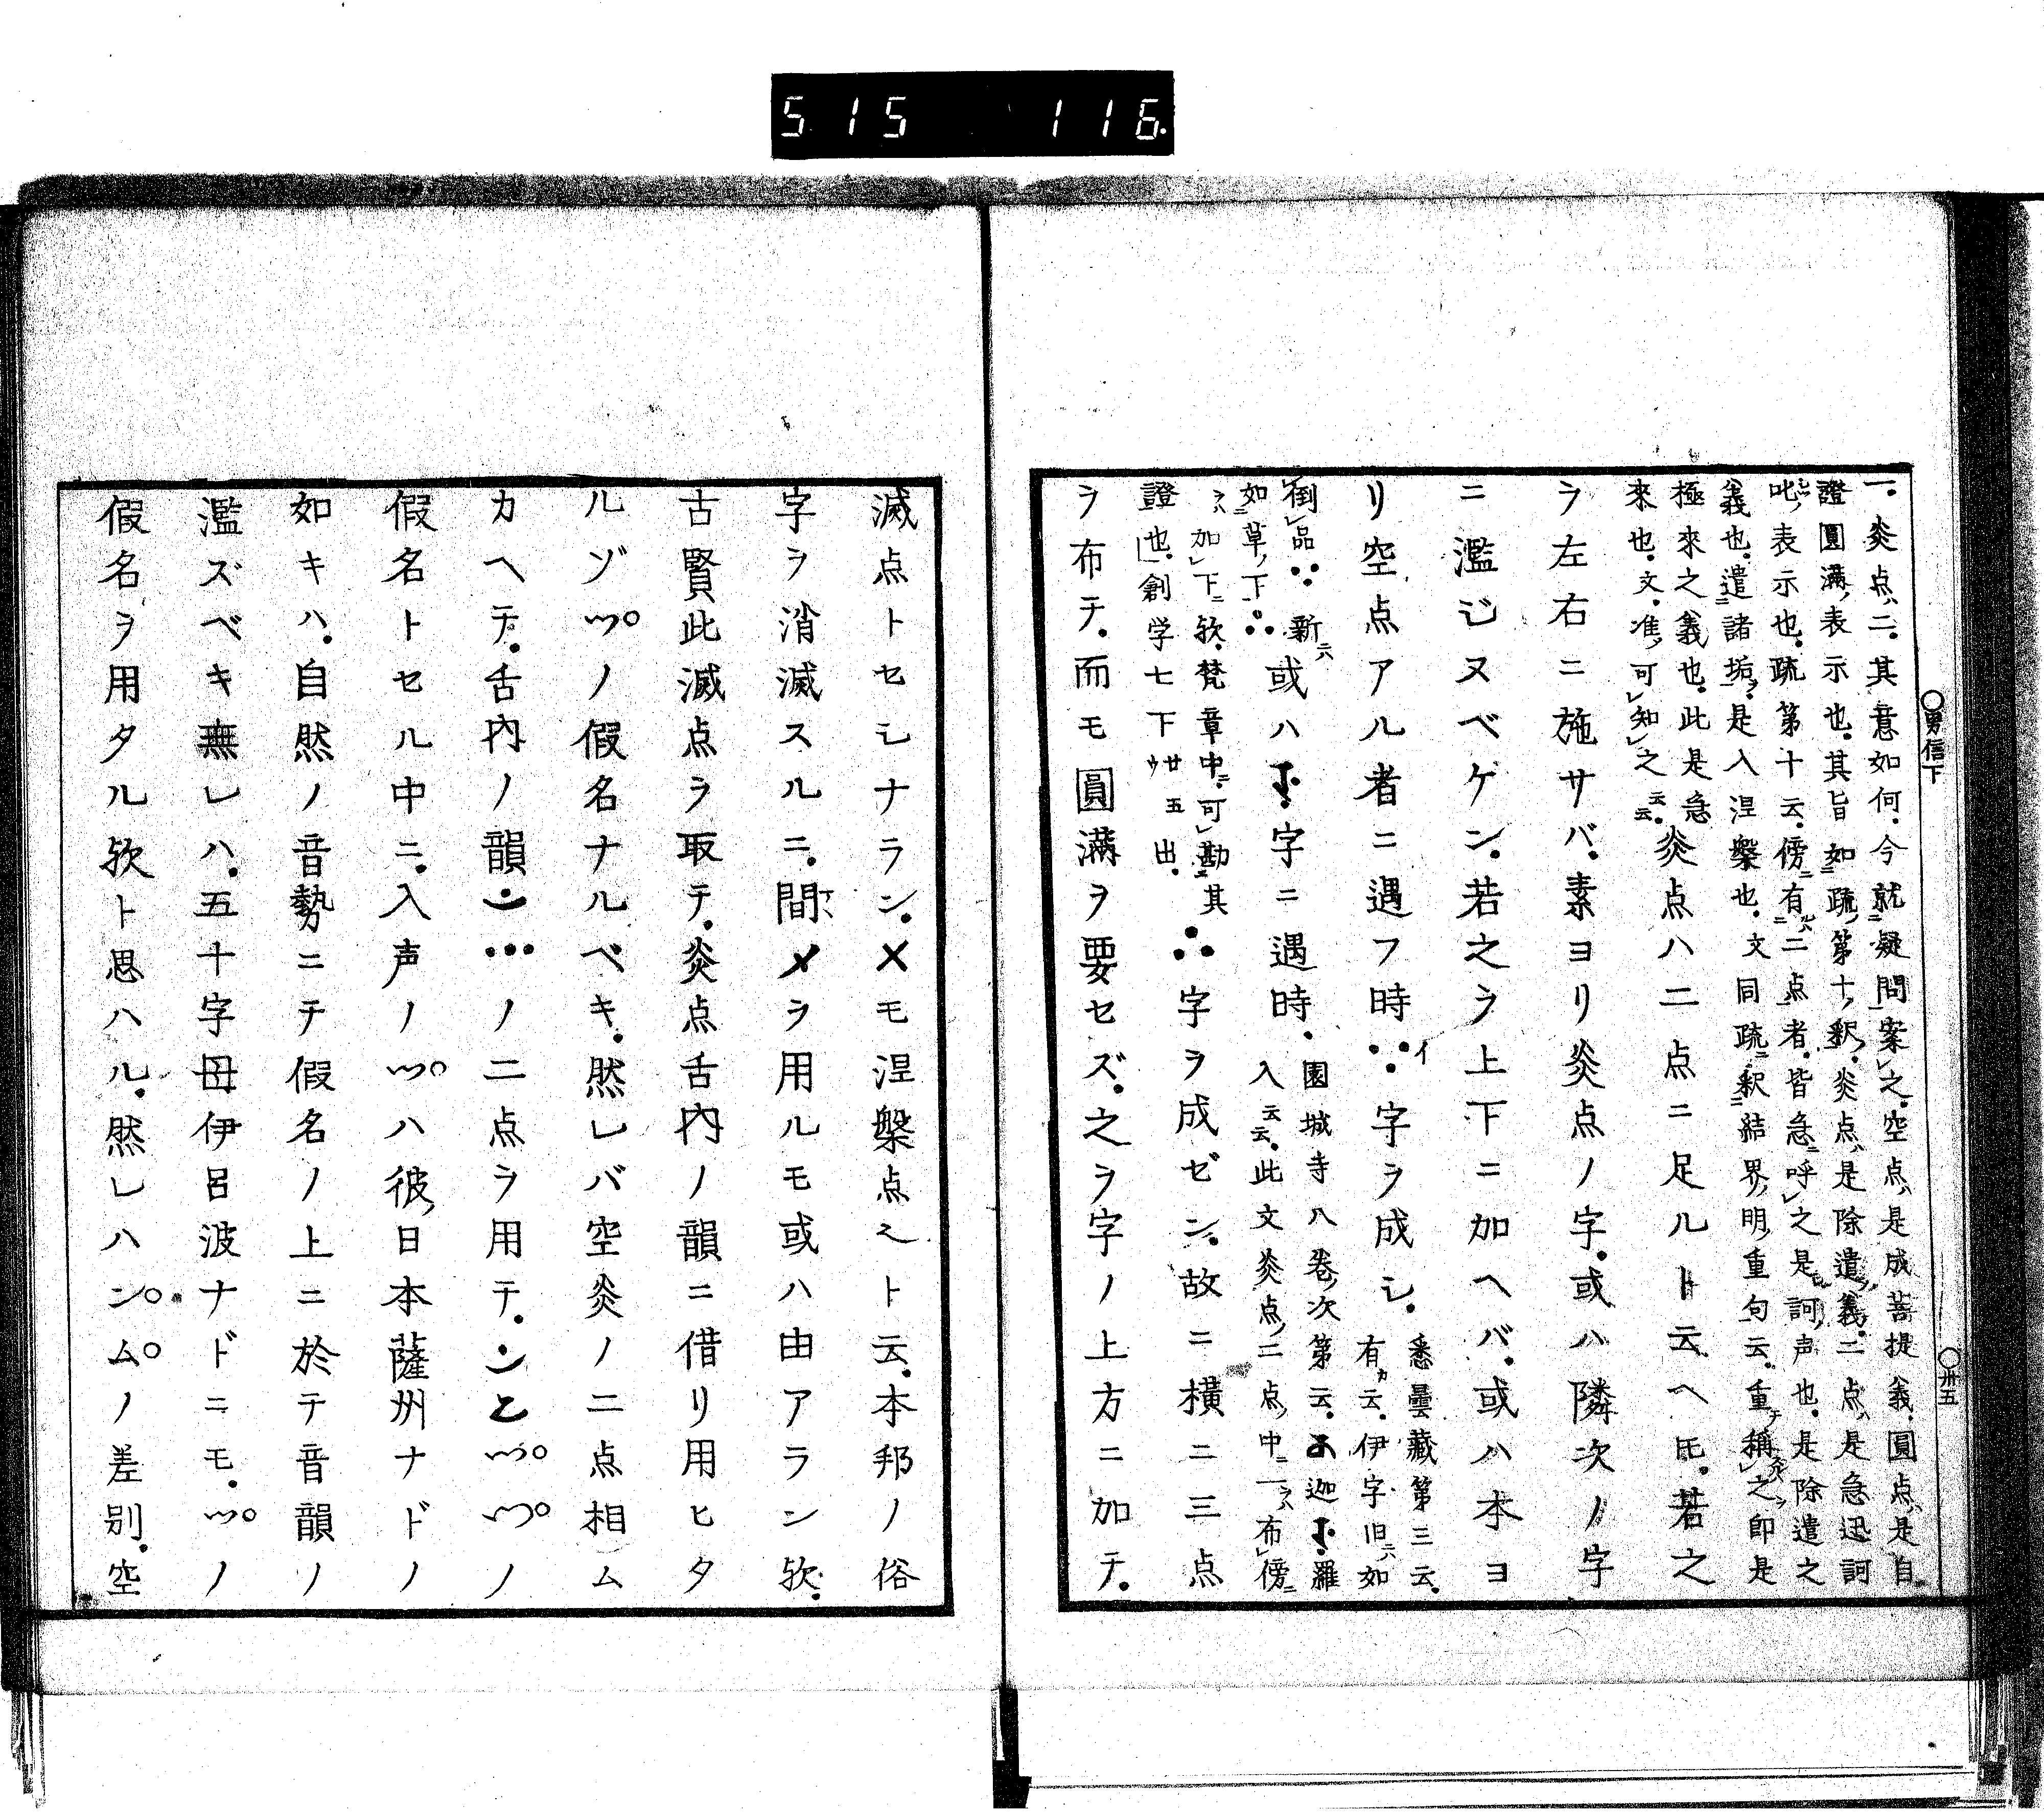 515 116
男信下
卅五
一。炎点、二。其意如何。今就疑問案之。空点、是成菩提義。圓点、是自
證圓滿、表示也。其旨如疏、第十、釈。炎点、是除遣義。二点、是急迅訶
叱、表示也。疏第十云。傍有二点者。皆急呼之是訶声也。是除遣之
義也。遣諸垢。是入涅槃也。文同疏釈結界、明、重句云。重稱之即是
極來之義也。此是急
來也。文。准、可知之云云。炎点ハ二点ニ足ルト云ヘ𪜈。若之
ヲ左右ニ施サバ。素ヨリ炎点ノ字。或ハ隣次ノ字
ニ濫ジヌベケン。若之ヲ上下ニ加ヘバ。或ハ本ヨ
リ空点アル者ニ遇フ時字ヲ成シ。悉曇藏第三云。
有云。伊字旧如
倒品新
如草、下或ハ字ニ遇時。園城寺八卷、次第云。迦羅
入云云。此文炎点、二点、中一布傍
加下欤。梵章中。可勘其
證也。創学七下廿五出。字ヲ成ゼン。故ニ横ニ三点
ヲ布テ。而モ圓滿ヲ要セズ。之ヲ字ノ上方ニ加テ。
滅点トセシナラン。✕モ涅槃点之ト云。本邦ノ俗
字ヲ消滅スルニ。間〆ヲ用ルモ或ハ由アラン欤。
古賢此滅点ヲ取テ。炎点舌内ノ韻ニ借リ用ヒタ
ルゾノ假名ナルベキ。然レバ空炎ノ二点相ム
カヘテ。舌内ノ韻ン…ノ二点ヲ用テ。ンノ
假名トセル中ニ。入声ノハ彼、日本薩州ナドノ
如キハ。自然ノ音勢ニテ假名ノ上ニ於テ音韻ノ
濫ズベキ無レハ。五十字母伊呂波ナドニモ。ノ
假名ヲ用タル欤ト思ハル。然レハン゜ム゜ノ差別。空